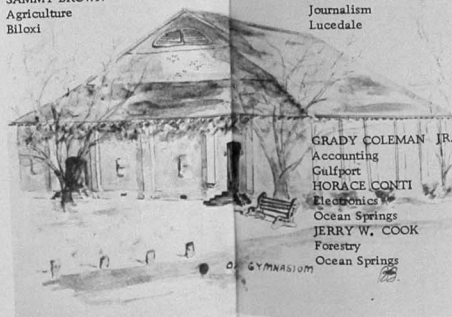 Agriculture
Biloxi
Journalism
Lucedale
GRADY COLEMAN JR.
Accounting
Gulfport
HORACE CONTI
Electronics
Ocean Springs
JERRY W. COOK
Forestry
Ocean Springs
GYMNASIUM